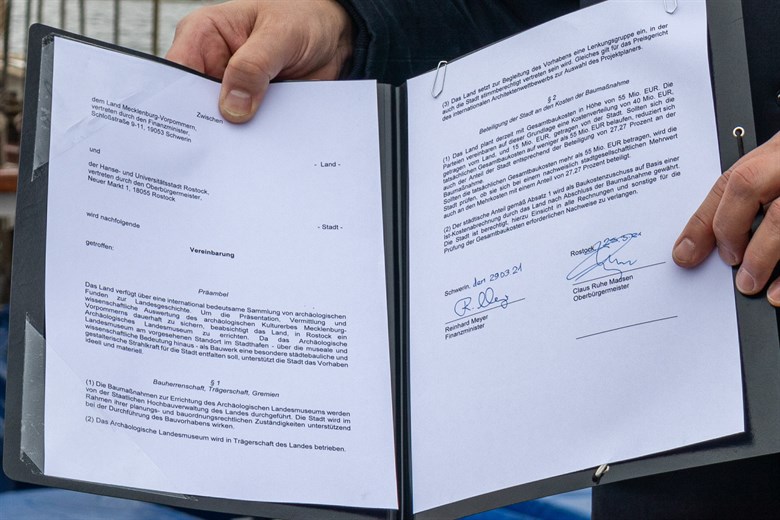 Zwischen
dem Land Mecklenburg-Vorpommern,
vertreten durch den Finanzminister,
Schloßstraße 9-11, 19053 Schwerin
- Land -
und
der Hanse- und Universitätsstadt Rostock,
vertreten durch den Oberbürgermeister,
Neuer Markt 1, 18055 Rostock
- Stadt -
wird nachfolgende
Vereinbarung
getroffen:
Präambel
Das Land verfügt über eine international bedeutsame Sammlung von archäologischen
Funden zur Landesgeschichte. Um die Präsentation, Vermittlung und
wissenschaftliche Auswertung des archäologischen Kulturerbes Mecklenburg-
Vorpommerns dauerhaft zu sichern, beabsichtigt das Land, in Rostock ein
Archäologisches Landesmuseum zu errichten. Da das Archäologische
Landesmuseum am vorgesehenen Standort im Stadthafen - über die museale und
wissenschaftliche Bedeutung hinaus - als Bauwerk eine besondere städtebauliche und
gestalterische Strahlkraft für die Stadt entfalten soll, unterstützt die Stadt das Vorhaben
ideell und materiell.
§ 1
Bauherrenschaft, Trägerschaft, Gremien
(1) Die Baumaßnahmen zur Errichtung des Archäologischen Landesmuseums werden
von der Staatlichen Hochbauverwaltung des Landes durchgeführt. Die Stadt wird im
Rahmen ihrer planungs- und bauordnungsrechtlichen Zuständigkeiten unterstützend
bei der Durchführung des Bauvorhabens wirken.
(2) Das Archäologische Landesmuseum wird in Trägerschaft des Landes betrieben.
(3) Das Land setzt zur Begleitung des Vorhabens eine Lenkungsgruppe ein, in der
auch die Stadt stimmberechtigt vertreten sein wird. Gleiches gilt für das Preisgericht
des internationalen Architektenwettbewerbs zur Auswahl des Projektplaners.
§ 2
Beteiligung der Stadt an den Kosten der Baumaßnahme
(1) Das Land plant derzeit mit Gesamtbaukosten in Höhe von 55 Mio. EUR. Die
Parteien vereinbaren auf dieser Grundlage eine Kostenverteilung von 40 Mio. EUR,
getragen vom Land, und 15 Mio. EUR, getragen von der Stadt. Sollten sich die
tatsächlichen Gesamtbaukosten auf weniger als 55 Mio. EUR belaufen, reduziert sich
auch der Anteil der Stadt entsprechend der Beteiligung von 27,27 Prozent an der
Baumaßnahme.
Sollten die tatsächlichen Gesamtbaukosten mehr als 55 Mio. EUR betragen, wird die
Stadt prüfen, ob sie sich bei einem nachweislich stadtgesellschaftlichen Mehrwert
auch an den Mehrkosten mit einem Anteil von 27,27 Prozent beteiligt.
(2) Der städtische Anteil gemäß Absatz 1 wird als Baukostenzuschuss auf Basis einer
Ist-Kostenabrechnung durch das Land nach Abschluss der Baumaßnahme gewährt.
Die Stadt ist berechtigt, hierzu Einsicht in alle Rechnungen und sonstige für die
Prüfung der Gesamtbaukosten erforderlichen Nachweise zu verlangen.
Schwerin, den 29.03.21
Rostock,
Reinhard Meyer
Finanzminister
Claus Ruhe Madsen
Oberbürgermeister